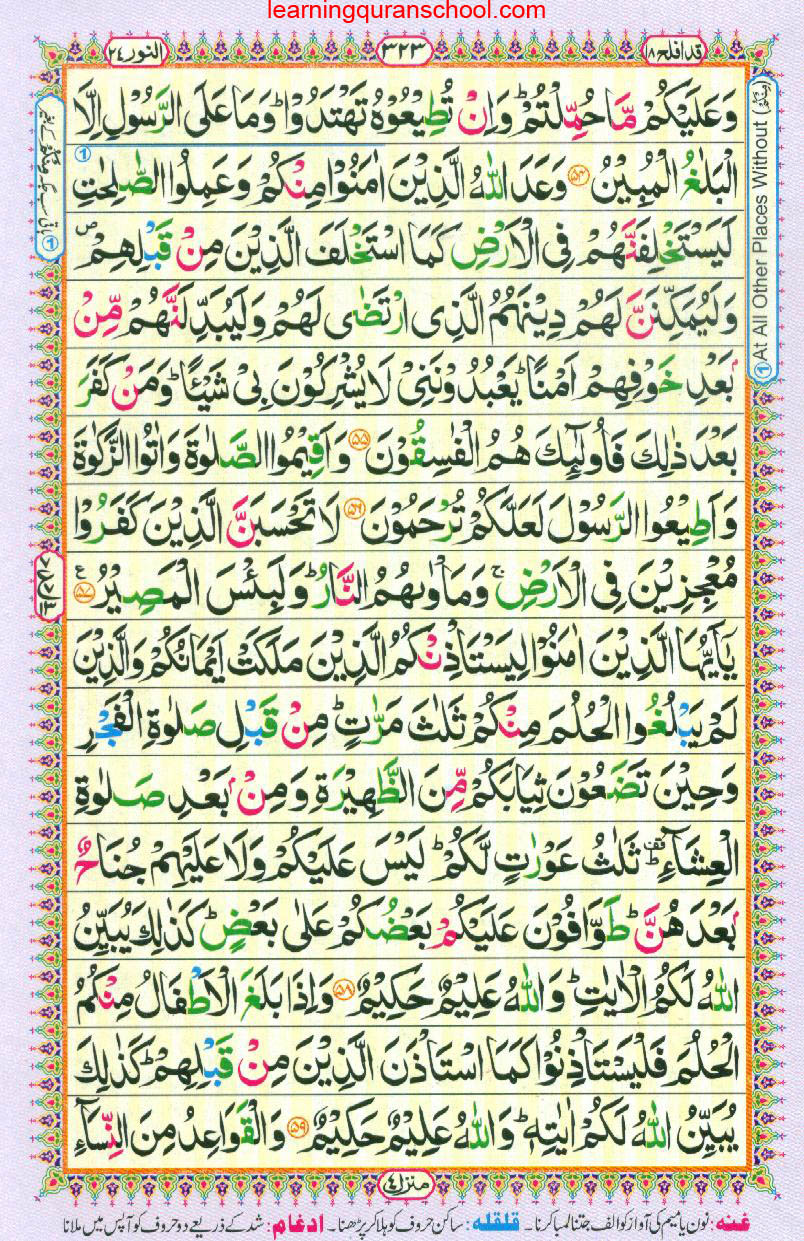 learningquranschool.com
قد افلح ۱۸
۳۲۳
النور ۲۴
وَعَلَيْكُمْ مَّا حُمِّلْتُمْ ؕ وَاِنْ تُطِيْعُوْهُ تَهْتَدُوْا ؕ وَمَا عَلَى الرَّسُوْلِ اِلَّا
الْبَلٰغُ الْمُبِيْنُ ﴿۵۴﴾ وَعَدَ اللّٰهُ الَّذِيْنَ اٰمَنُوْا مِنْكُمْ وَعَمِلُوا الصّٰلِحٰتِ
لَيَسْتَخْلِفَنَّهُمْ فِى الْاَرْضِ كَمَا اسْتَخْلَفَ الَّذِيْنَ مِنْ قَبْلِهِمْ ص
وَلَيُمَكِّنَنَّ لَهُمْ دِيْنَهُمُ الَّذِى ارْتَضٰى لَهُمْ وَلَيُبَدِّلَنَّهُمْ مِّنْۢ
بَعْدِ خَوْفِهِمْ اَمْنًا ؕ يَعْبُدُوْنَنِىْ لَا يُشْرِكُوْنَ بِىْ شَيْـًٔا ؕ وَمَنْ كَفَرَ
بَعْدَ ذٰلِكَ فَاُولٰٓئِكَ هُمُ الْفٰسِقُوْنَ ﴿۵۵﴾ وَاَقِيْمُوا الصَّلٰوةَ وَاٰتُوا الزَّكٰوةَ
وَاَطِيْعُوا الرَّسُوْلَ لَعَلَّكُمْ تُرْحَمُوْنَ ﴿۵۶﴾ لَا تَحْسَبَنَّ الَّذِيْنَ كَفَرُوْا
مُعْجِزِيْنَ فِى الْاَرْضِ ۚ وَمَاْوٰىهُمُ النَّارُ ؕ وَلَبِئْسَ الْمَصِيْرُ ﴿۵۷﴾ ع
يٰۤاَيُّهَا الَّذِيْنَ اٰمَنُوْا لِيَسْتَاْذِنْكُمُ الَّذِيْنَ مَلَكَتْ اَيْمَانُكُمْ وَالَّذِيْنَ
لَمْ يَبْلُغُوا الْحُلُمَ مِنْكُمْ ثَلٰثَ مَرّٰتٍ ؕ مِنْ قَبْلِ صَلٰوةِ الْفَجْرِ
وَحِيْنَ تَضَعُوْنَ ثِيَابَكُمْ مِّنَ الظَّهِيْرَةِ وَمِنْۢ بَعْدِ صَلٰوةِ
الْعِشَآءِ ؕ قف ثَلٰثُ عَوْرٰتٍ لَّكُمْ ؕ لَيْسَ عَلَيْكُمْ وَلَا عَلَيْهِمْ جُنَاحٌۢ
بَعْدَهُنَّ ؕ طَوّٰفُوْنَ عَلَيْكُمْ بَعْضُكُمْ عَلٰى بَعْضٍ ؕ كَذٰلِكَ يُبَيِّنُ
اللّٰهُ لَكُمُ الْاٰيٰتِ ؕ وَاللّٰهُ عَلِيْمٌ حَكِيْمٌ ﴿۵۸﴾ وَاِذَا بَلَغَ الْاَطْفَالُ مِنْكُمُ
الْحُلُمَ فَلْيَسْتَاْذِنُوْا كَمَا اسْتَاْذَنَ الَّذِيْنَ مِنْ قَبْلِهِمْ ؕ كَذٰلِكَ
يُبَيِّنُ اللّٰهُ لَكُمْ اٰيٰتِهٖ ؕ وَاللّٰهُ عَلِيْمٌ حَكِيْمٌ ﴿۵۹﴾ وَالْقَوَاعِدُ مِنَ النِّسَآءِ
① At All Other Places Without (مِنْكُمْ)
① باقی سب جگہ مِنْكُمْ کے بغیر
منزل ۴
غنه: نون یا میم کی آواز کو الف جتنا لمبا کرنا۔ قلقله: ساکن حروف کو ہلا کر پڑھنا۔ ادغام: شد کے ذریعے دو حروف کو آپس میں ملانا